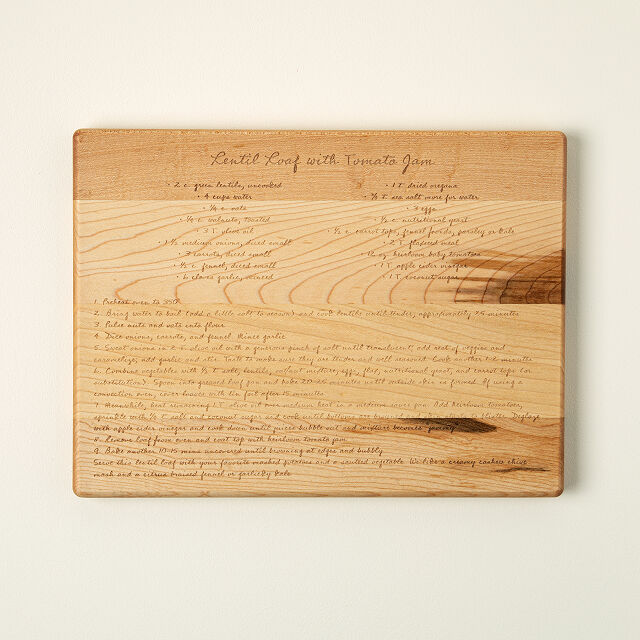 Lentil Loaf with Tomato Jam
• 2 c. green lentils, uncooked
• 4 cups water
• ¼ c. oats
• ¼ c. walnuts, toasted
• 3 T. olive oil
• 1 ½ medium onions, diced small
• 3 carrots, diced small
• ½ c. fennel, diced small
• 6 cloves garlic, minced
• 1 T. dried oregano
• sea salt more for water
• 3 eggs
• ½ c. nutritional yeast
• ½ c. carrot tops, fennel fronds, parsley or kale
• 2 T. flaxseed meal
• 12 oz. heirloom baby tomatoes
• 1 T. apple cider vinegar
• 1 T. coconut sugar
1. Preheat oven to 350.
2. Bring water to boil (add a little salt to season) and cook lentils until tender, approximately 25 minutes
3. Pulse nuts and oats into flour
4. Dice onions, carrots, and fennel. Mince garlic
5. Sweat onions in 2 T. olive oil with a generous pinch of salt until translucent; add rest of veggies and
caramelize; add garlic and stir. Taste to make sure they are tender and well seasoned. Cook another 1-2 minutes
6. Combine vegetables with ½ T. salt, lentils, walnut mixture, eggs, flax, nutritional yeast, and carrot tops (or
substitution). Spoon into greased loaf pan and bake 20-25 minutes until outside skin is formed. If using a
convection oven, cover loaves with tin foil after 15 minutes.
7. Meanwhile, heat remaining 1 T. olive oil over medium heat in a medium sauce pan. Add heirloom tomatoes,
sprinkle with ½ T. salt and coconut sugar and cook until bottoms are browned and skin starts to blister. Deglaze
with apple cider vinegar and cook down until juices bubble out and mixture becomes "jammy"
8. Remove loaf from oven and coat top with heirloom tomato jam
9. Bake another 10-15 mins uncovered until browning at edges and bubbly
Serve this lentil loaf with your favorite mashed potatoes and a sautéed vegetable. We like a creamy cashew chive
mash and a citrus braised fennel or garlicky kale